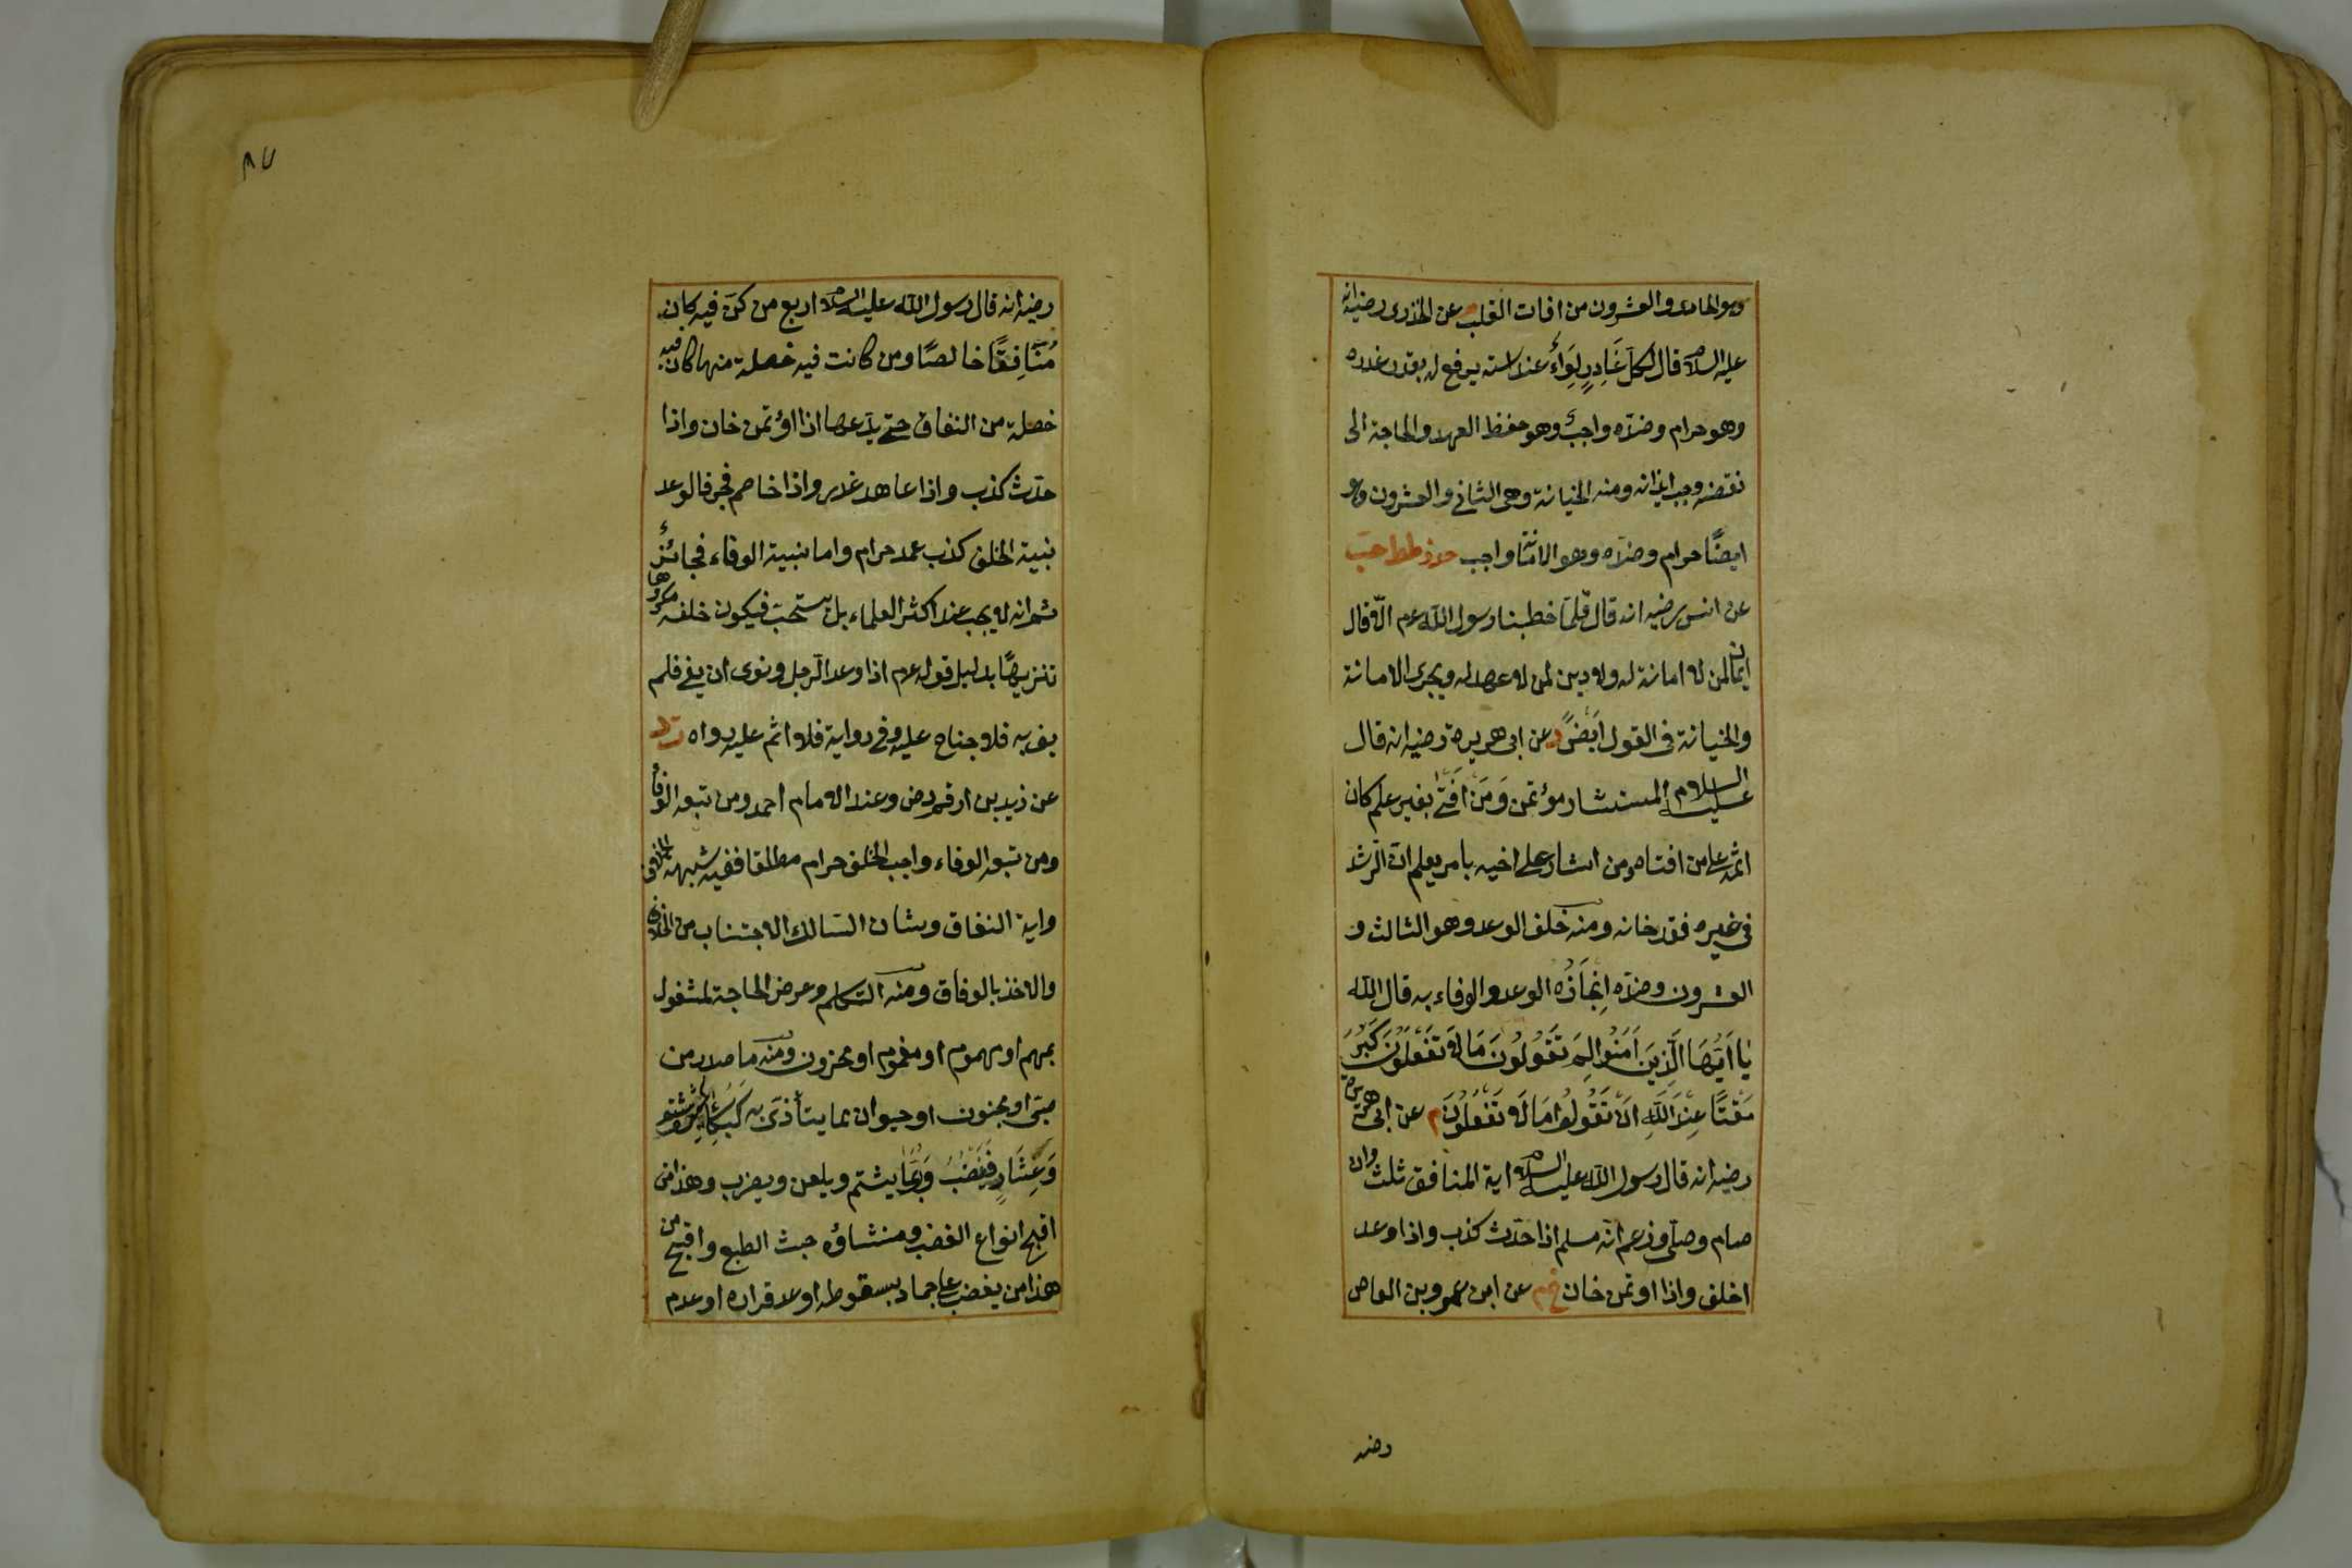 وهو الحادى والعشرون من افات القلب عن الخدرى رضيه انه
عليه السلام قال لكل غَادِرٍ لِوَاءٌ عند استه يرفع له بقدر غدره
وهو حرام وضدّه واجبٌ وهو حفظ العهد والحاجة الى
نقضه وجب ايذانه ومنه الخيانة وهى الثانى والعشرون وهو
ايضًا حرام وضدّه وهو الامانة واجب حد ز طط حب
عن انس رضيه انه قال قلّما خطبنا رسول الله عم الّا قال
لا ايمان لمن لا امانة له ولا دين لمن لا عهد له ويجرى الامانة
والخيانة فى القول ايضًا د عن ابى هريرة رضيه انه قال
عليه السلام المستشار مؤتمن وَمَنْ اَفْتَى بغير علم كان
اثمه على من افتاه ومن اشار على اخيه بامر يعلم انّ الرّشد
فى غيره فقد خانه ومنه خلف الوعد وهو الثالث و
العشرون وضدّه اِنجَازُه الوعد والوفاء به قال الله
يَا اَيُّهَا الَّذِينَ اَمَنُوا لِمَ تَقُولُونَ مَا لَا تَفْعَلُونَ كَبُرَ
مَقْتًا عِنْدَ اللهِ اَنْ تَقُولُوا مَا لَا تَفْعَلُونَ م عن ابى هريرة
رضيه انه قال رسول الله عليه السلام اية المنافق ثلث وان
صام وصلّى وزعم انّه مسلم اذا حدّث كذب واذا وعد
اخلف واذا اوتمن خان خ م عن ابن عمرو بن العاص
رضه
٨٧
رضيه انه قال رسول الله عليه السلام اربع من كنّ فيه كان
مُنَافِقًا خالصًا ومن كانت فيه خصلة منها كان فيه
خصلة من النفاق حتى يدعها اذا اؤتمن خان واذا
حدّث كذب واذا عاهد غدر واذا خاصم فجر فالوعد
بنية الخلف كذب عمد حرام واما بنية الوفاء فجائزٌ
ثم انه لا يجب عند اكثر العلماء بل يستحبّ فيكون خلفه مكروها
تنزيهًا بدليل قوله عم اذا وعد الرّجل ونوى ان يفى فلم
يف به فلا جناح عليه وفى رواية فلا اثم عليه رواه ت د
عن زيد بن ارقم رض وعند الامام احمد ومن تبعه الوفاء
ومن تبعه الوفاء واجب الخلف حرام مطلقا ففيه شبهة الخلاف
واية النفاق وشان السّالك الاجتناب من الخلاف
والاخذ بالوفاق ومنه التكلم وعرض الحاجة لمشغول
بمهم او مهموم او مغموم او محزون ومنه ما صدر من
صبّى او مجنون او حيوان بما يتأذى به كَبُكَاءِ
وَعِثَارٍ فَيَغْضَبُ وَرُبَّمَا يشتم ويلعن ويضرب وهذا من
اقبح انواع الغضب ومنشاؤه خبث الطبع واقبح من
هذا من يغضب على جماد بسقوطه او عدم قراره او عدم